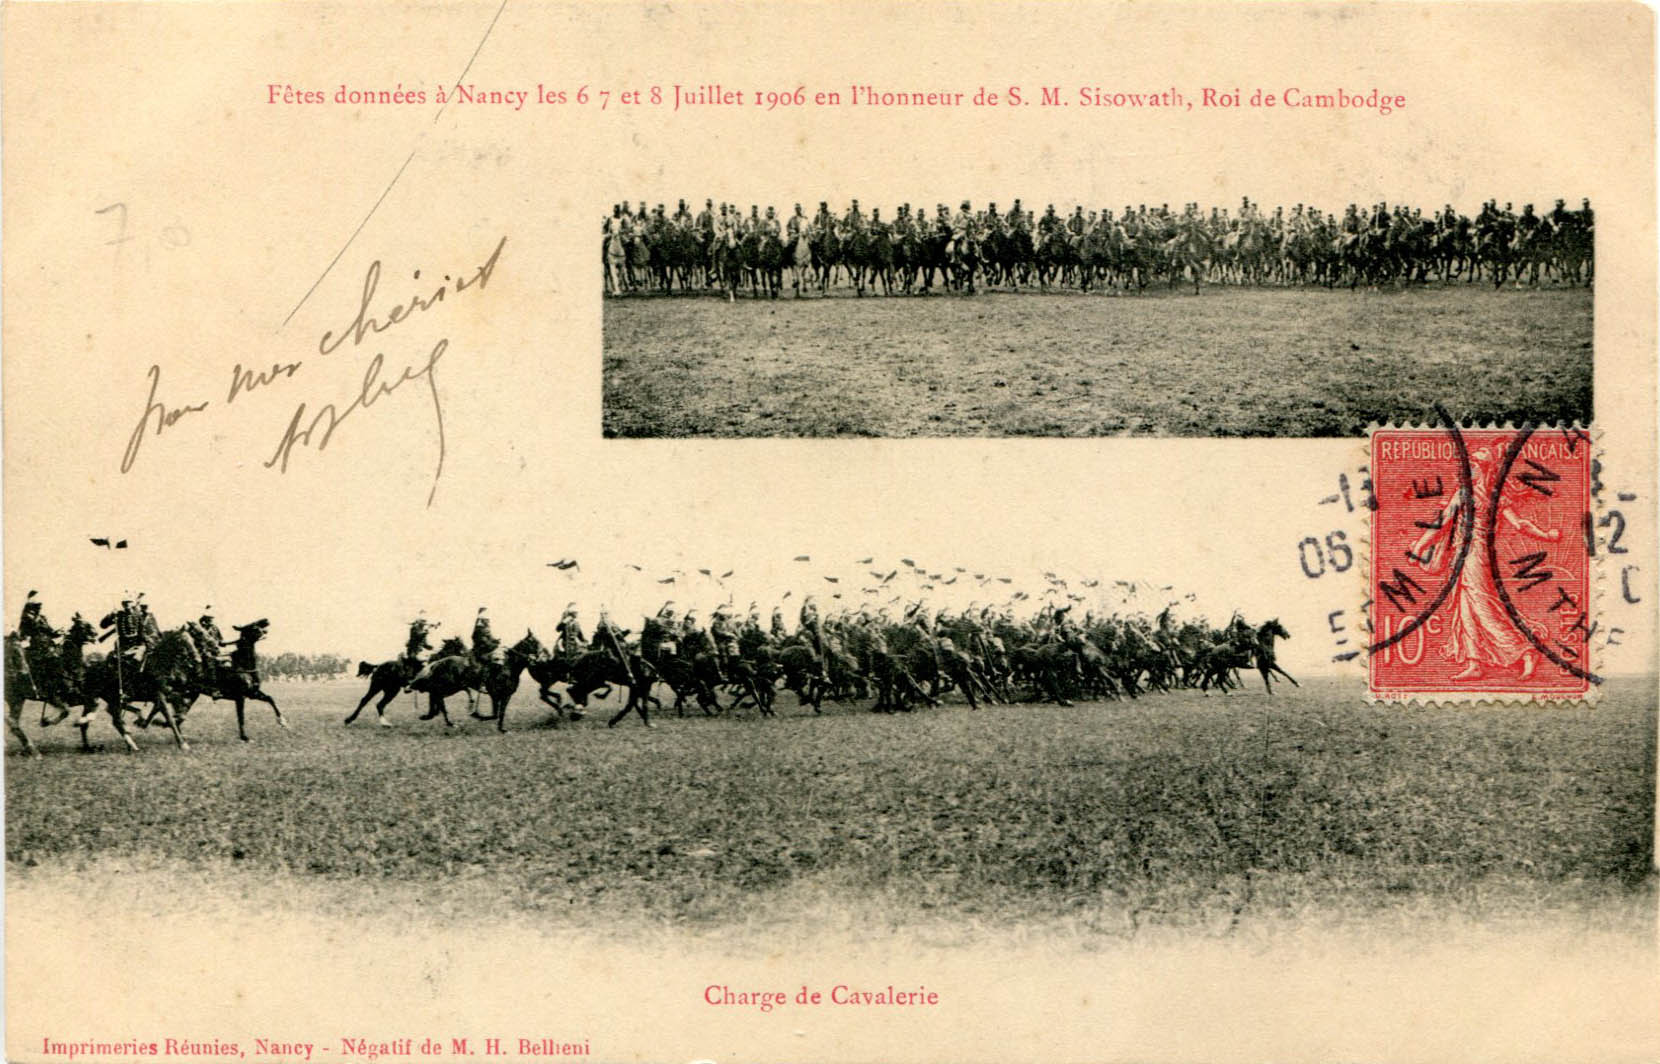 Fêtes données à Nancy les 6 7 et 8 Juillet 1906 en l'honneur de S. M. Sisowath, Roi de Cambodge
7,0
mes chéries
RÉPUBLIQUE FRANÇAISE
10c
POSTES
06
12
Charge de Cavalerie
Imprimeries Réunies, Nancy - Négatif de M. H. Bellieni